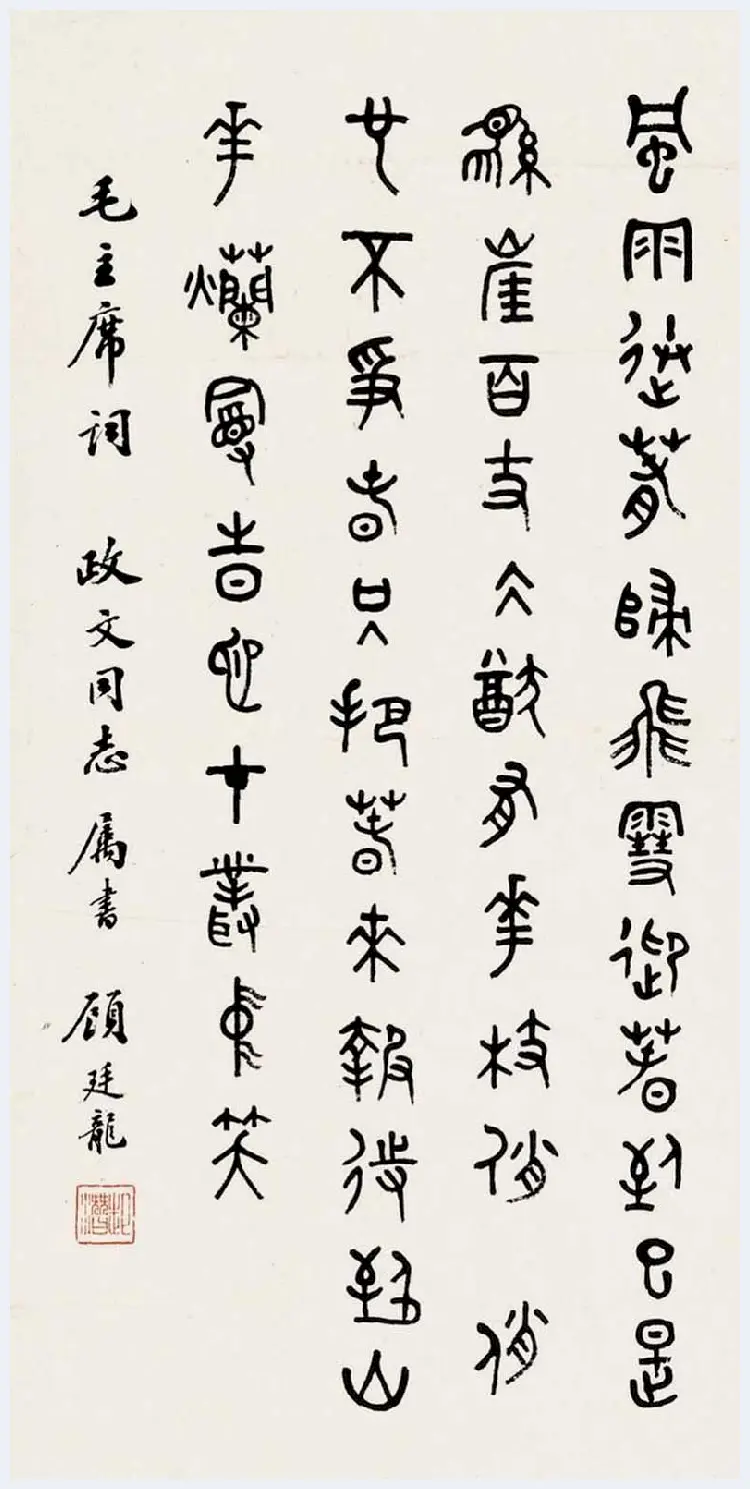 風雨送春歸飛雪迎春到已是
縣崖百丈仌猷有華枝俏 俏
也不爭春只把春來報待到山
華爛曼時也才叢中笑
毛主席詞 政文同志属書 顧廷龍
起潛